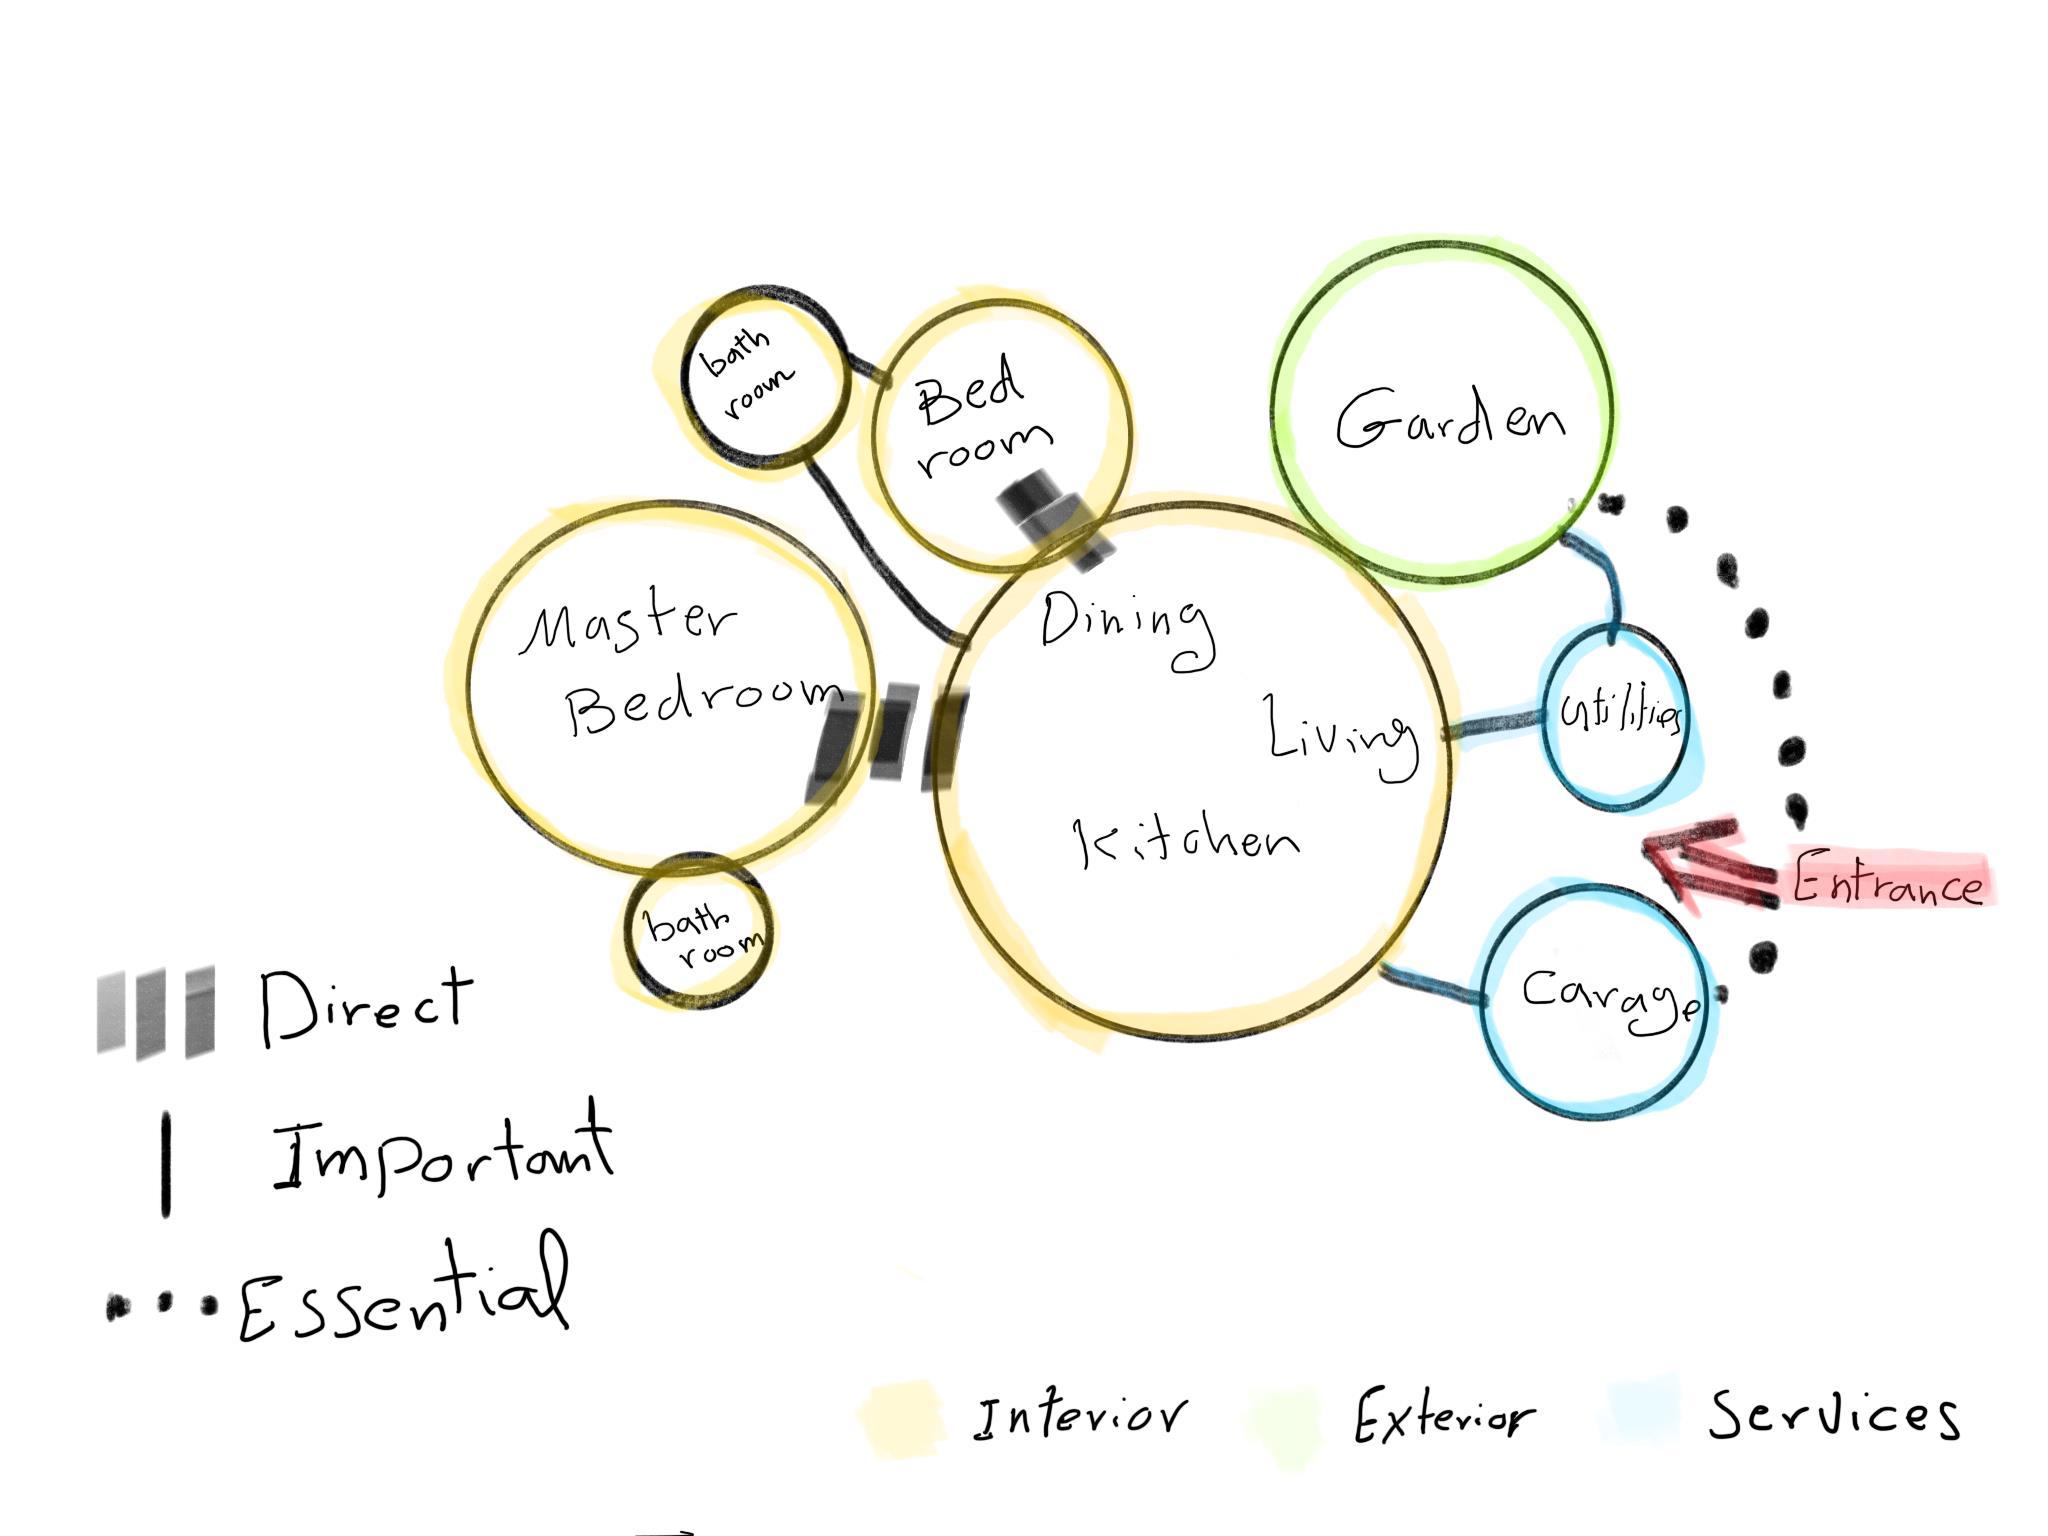 bath
room
Bed
room
Garden
Master
Bedroom
Dining
Living
Kitchen
utilities
Entrance
bath
room
Carage
Direct
Important
Essential
Interior
Exterior
Services